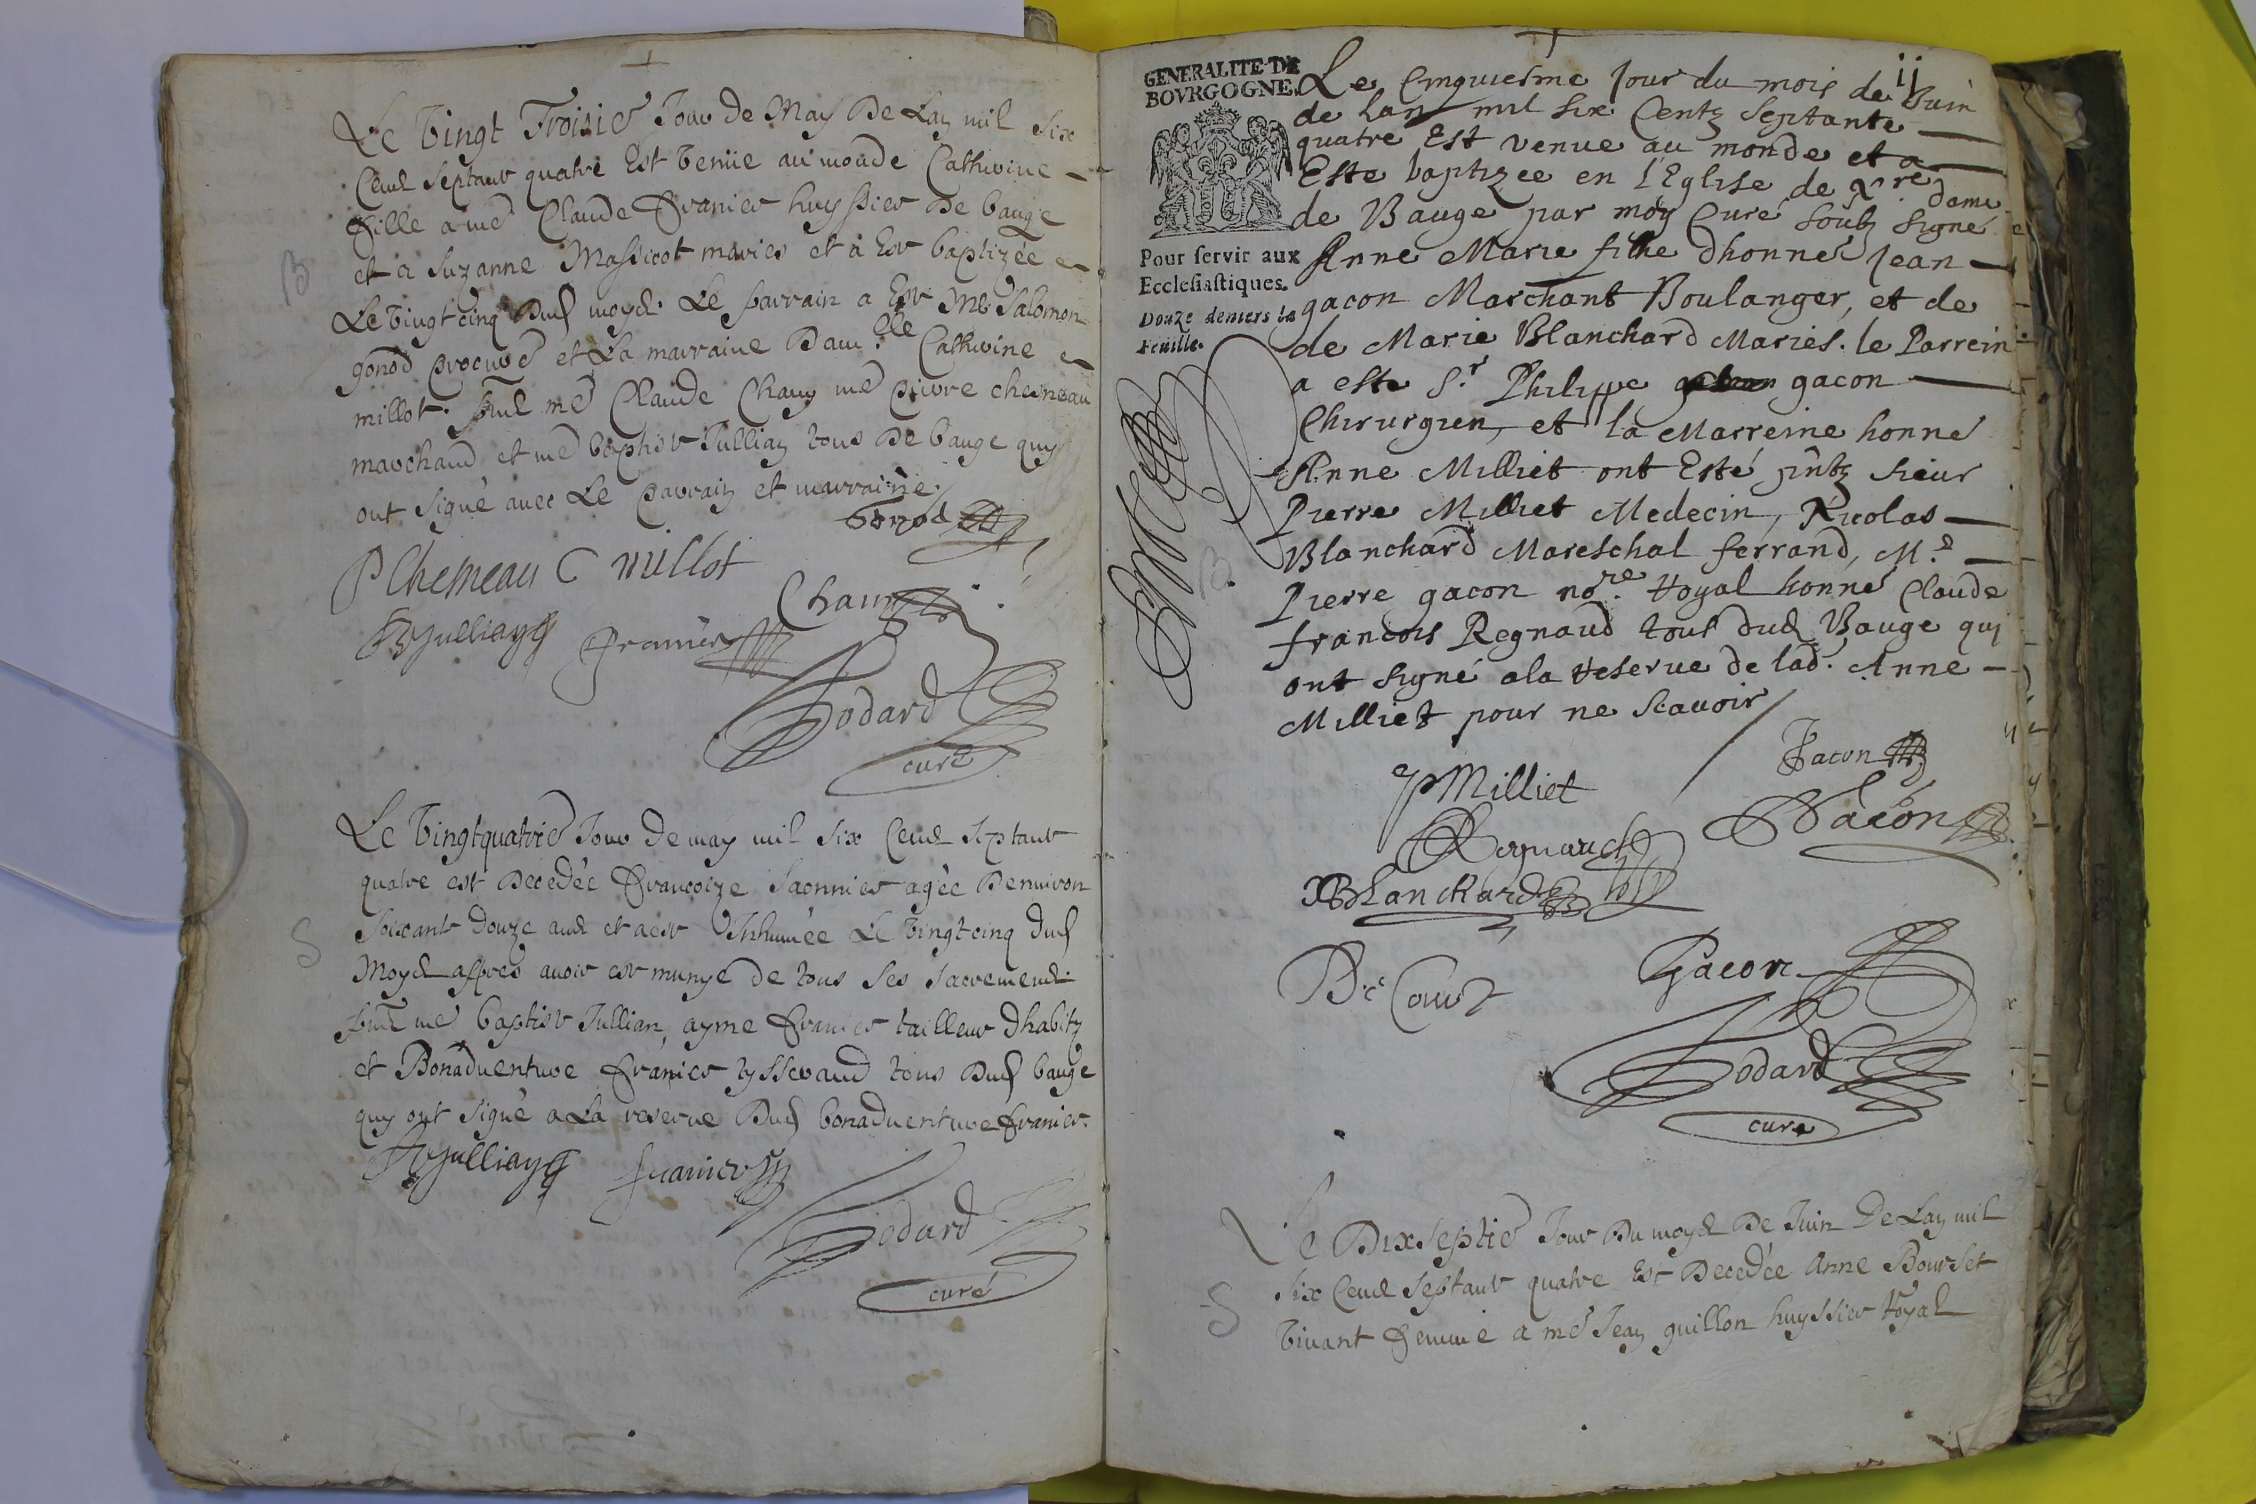 Le vingt Troisie Jour de May De Lan mil Six
Cent Septant quatre Est venüe au monde Catherine
fille a me Claude franier huyssier De baugé
et a Suzanne Massicot mariés et a Est baptizée
B
Le vingtcinq dud moys. Le parrain a Est Me Salomon
gonod procure et La marraine Dam.elle Catherine
millot. pnt me Claude Chany me pierre chesneau
marchand et me baptist Jullian tous de bauge quy
ont signé avec Le parrain et marraine.
Gonod
P Chesneau C millot
Chany
B Jullian franier
Godard
curé
Le vingtquatrie Jour de may mil six Cent Septant
quatre est Decedée francoize Saonnier agée Denuiron
Soixante douze ans et aest Inhumée Le vingtcinq dud
S
Moys appres auoir est munye de tous ses Sacrements
pnt me baptist Jullian, ayme franier tailleur dhabitz
et Bonaduenture franier tysserand tous dud bauge
quy ont signé a La reserue dud bonaduenture franier.
B Jullian franier
Godard
curé
ij
GENERALITE DE
BOVRGOGNE.
Pour servir aux
Ecclesiastiques.
Douze deniers la
Feuille.
Le Cinquiesme Jour du mois de Juin
de lan mil six Centz Septante
quatre Est venue au monde et a
Este baptizee en l'Eglise de Nre. dame
de Bauge par moy Curé soubz signé
Anne Marie fille dhonne Jean
gacon Marchant Boulanger, et de
de Marie Blanchard Mariés. le Parrein
a este S.r Philippe gacon
Chirurgien, et la Marreine honne
Anne Milliet ont Esté pñtz sieur
Pierre Milliet Medecin, Nicolas
B
Blanchard Mareschal ferrand, M.e
Pierre gacon no.re Royal honne Claude
francois Regnaud tous dud Bauge qui
ont signé ala reserue de lad. Anne
Milliet pour ne scauoir
P Milliet
Gacon
Regnaud
Gacon
N Blanchard
Gacon
Godard
curé
Le Dixseptie Jour Du moys De Juin De Lan mil
S
Six Cent Septant quatre Est Decedée Anne Bourset
viuant femme a me Jean guillon huyssier Royal